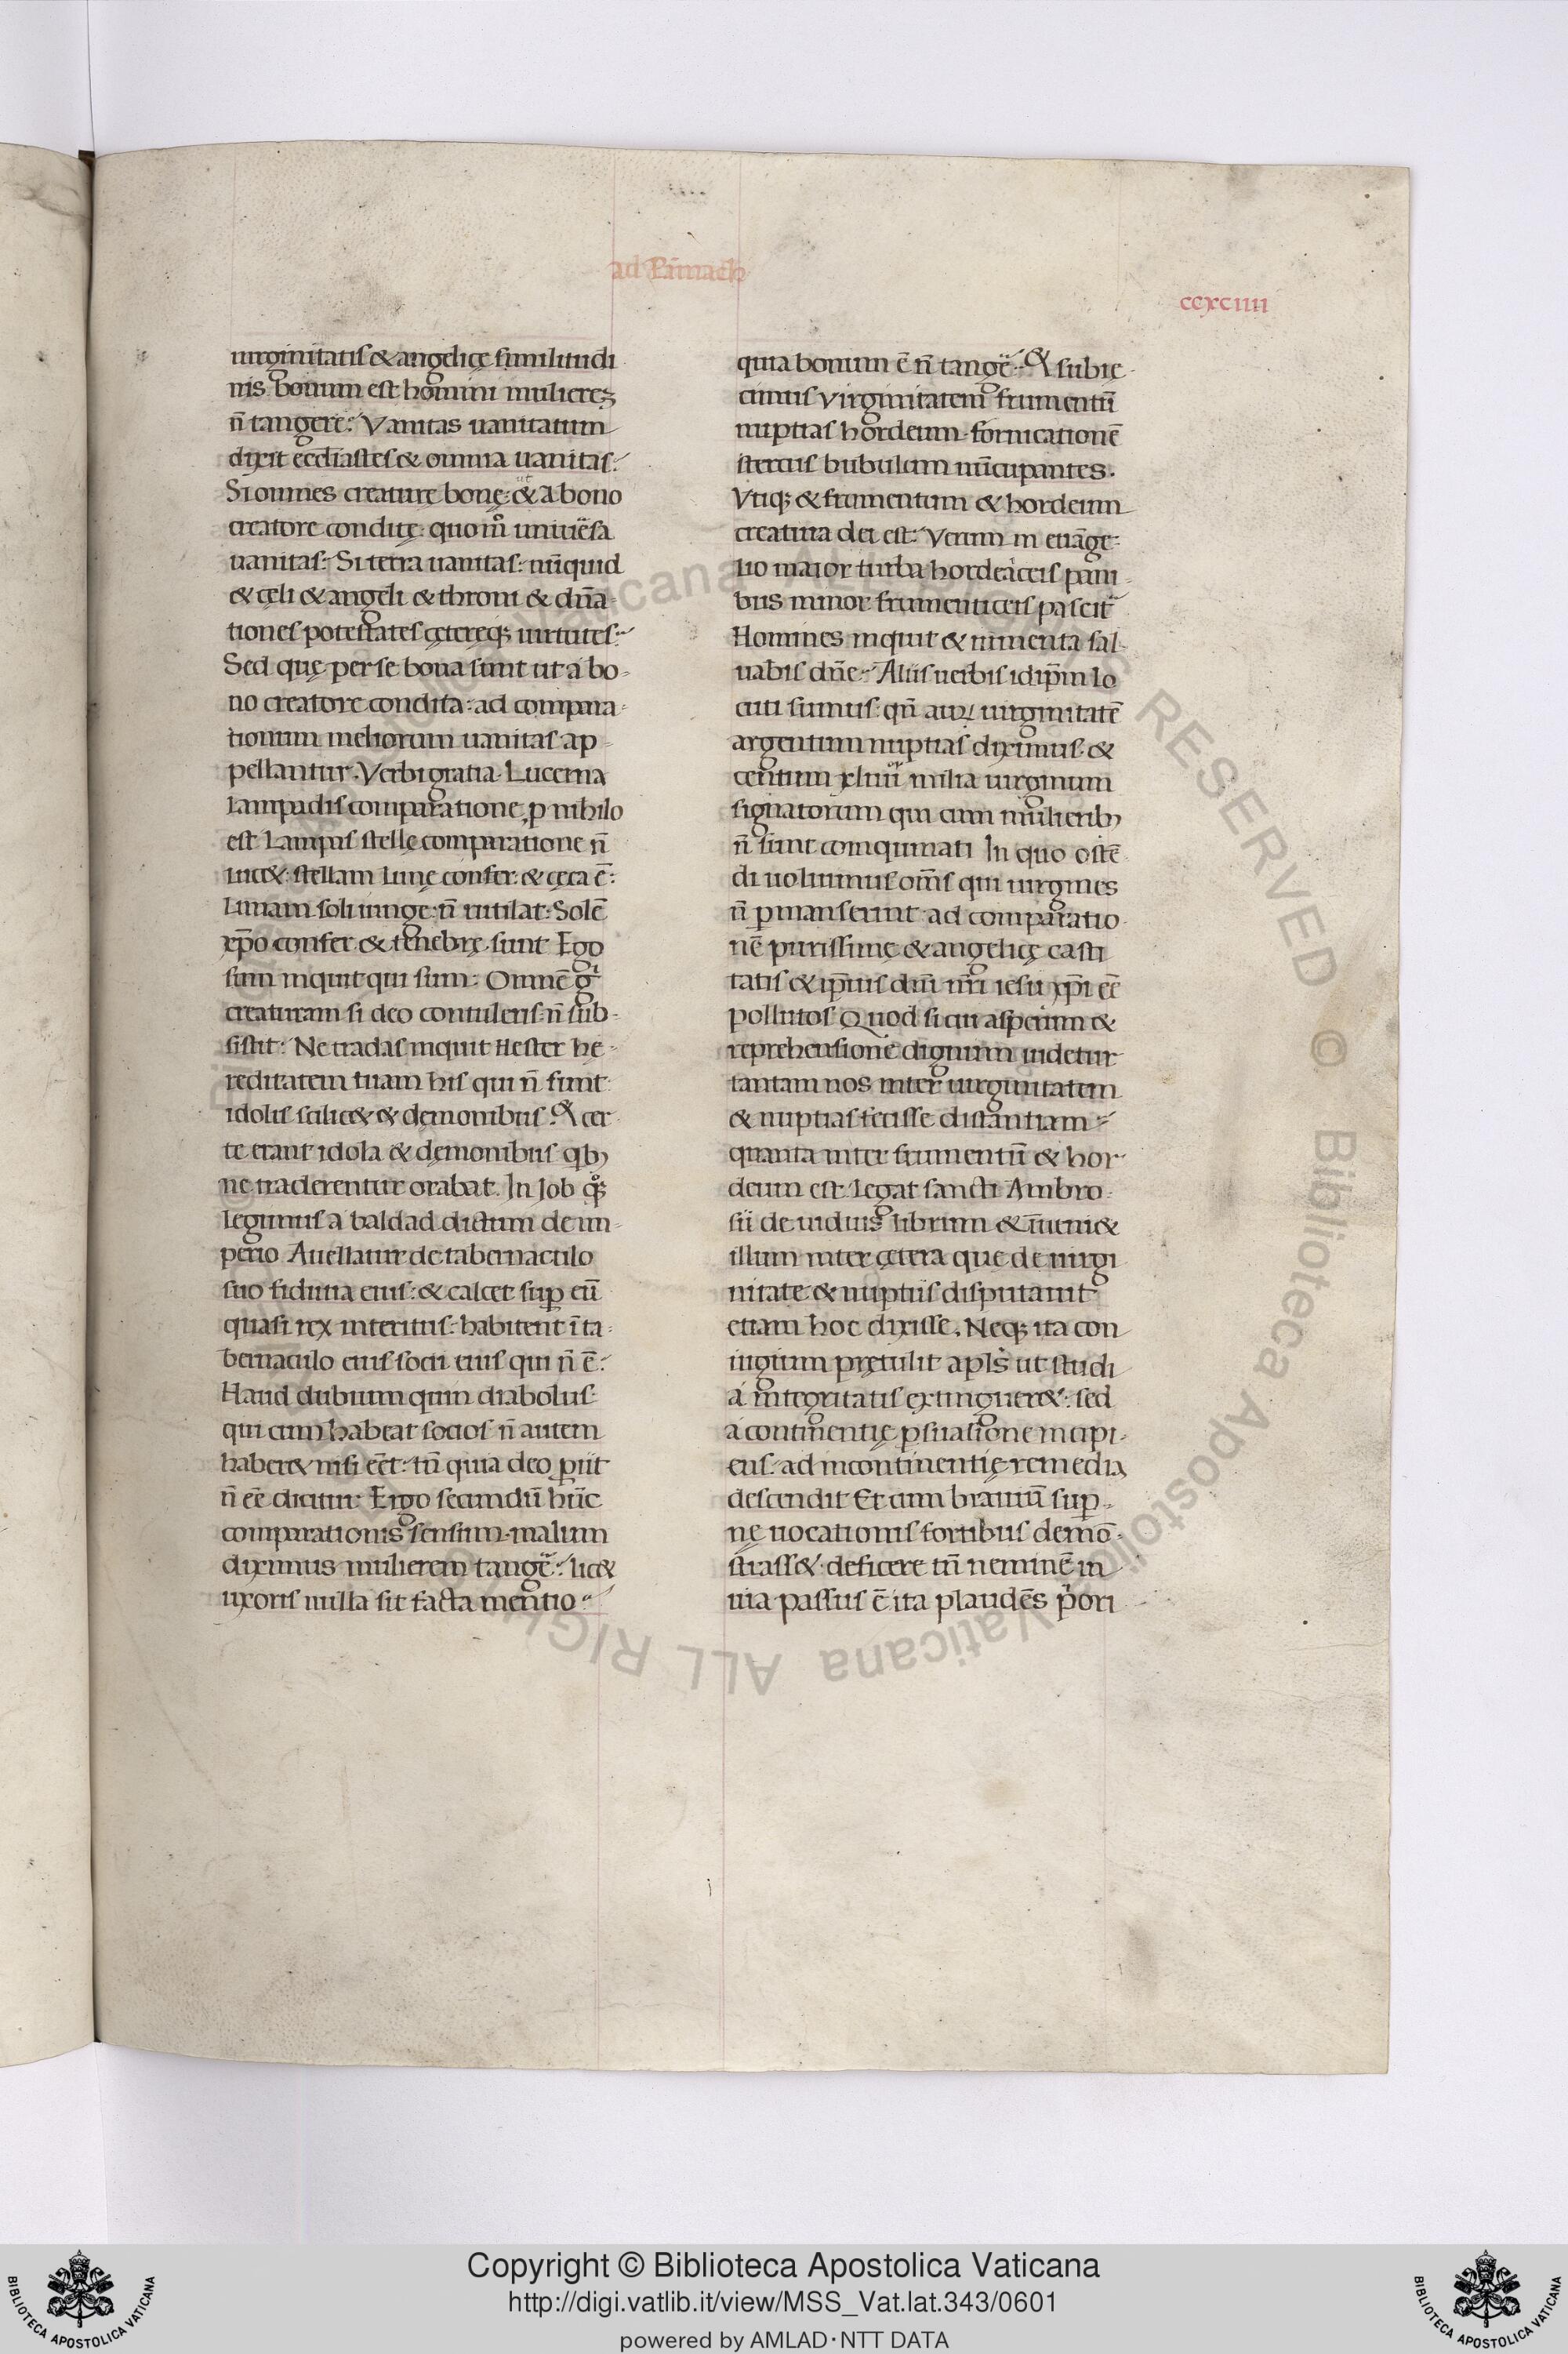 ad Pāmach
ccxciiii
uirginitatis & angelicę similitudi
nis. bonum est homini mulierez
n̄ tangere: Vanitas uanitatum
dixit ecclīastes & omnia uanitas:
Si omnes creature bonę: & a bono
creatore condite: quom̊ uniuēsa
uanitas: Si terra uanitas: nūquid
& cęli & angeli & throni & dn̄a-
tiones potestates cętereq; uirtutes:
Sed quę per se bona sunt ut a bo-
no creatore condita: ad compara-
tionum meliorum uanitas ap-
pellantur. Verbi gratia. Lucerna
Lampadis comparatione, ꝓ nihilo
est Lampas stellę comparatione n̄
luc&: stellam lunę confer: & cęca ē:
Lunam soli iunge: n̄ rutilat: Solē
xp̄o confer & tenebrę sunt Ego
sum inquit qui sum: Omnē gͥ
creaturam si deo contuleris: n̄ sub-
sistit: Ne tradas inquit Hester he-
reditatem tuam his qui n̄ sunt
idolis scilic& & dęmonibus. Et cer
te erant idola & dęmonibus qb;
ne traderentur orabat. In Job qͦq;
legimus a baldad dictum de im-
perio Auellatur de tabernaculo
suo fidutia eius: & calcet suꝑ eū
quasi rex interitus: habitent ī ta-
bernaculo eius socii eius qui n̄ ē:
Haud dubium quin diabolus
qui cum habeat socios n̄ autem
haber& nisi eēt: tn̄ quia deo ꝑiit
n̄ eē dicitur: Ergo secundū hūc
comparationis sensum malum
diximus mulierem tangē: lic&
uxoris nulla sit facta mentio
quia bonum ē n̄ tangē: Et subie-
cimus virginitatem frumentū
nuptias hordeum fornicationē
stercus bubulum nūcupantes.
Vtiq; & frumentum & hordeum
creatura dei est: Verum in euāge-
lio maior turba hordeaceis pani-
bus minor frumenticeis pascit᷑
Homines inquit & iumenta sal-
uabis dn̄e: Aliis uerbis idip̄m lo
cuti sumus: qn̄ auꝝ uirginitatē
argentum nuptias diximus &
centum xliiii milia uirginum
signatorum qui cum mulierib;
n̄ sunt coinquinati In quo ostē-
di uoluimus om̄s qui uirgines
n̄ ꝑmanserint ad comparatio
nē purissimę & angelicę casti
tatis & ip̄ius dn̄i nr̄i iesu xp̄i eē
pollutos Quod si cui asperum &
reprehensione dignum uidetur
tantam nos inter uirginitatem
& nuptias fecisse distantiam
quanta inter frumentū & hor-
deum est Legat sancti Ambro-
sii de uiduis librum & īueni&
illum inter cętera que de uirgi
nitate & nuptiis disputauit
etiam hoc dixisse. Neq; ita con
iugium prętulit apl̄s ut studi
a integritatis extinguer&: sed
a continentię ꝑsuasione incipi-
ens: ad incontinentię remedia
descendit Et cum brauiū suꝑ-
nę uocationis fortibus demō-
strass& deficere tn̄ neminē in
uia passus ē ita plaudēs pͥori
i
Copyright © Biblioteca Apostolica Vaticana
http://digi.vatlib.it/view/MSS_Vat.lat.343/0601
powered by AMLAD·NTT DATA
BIBLIOTECA APOSTOLICA VATICANA
BIBLIOTECA APOSTOLICA VATICANA